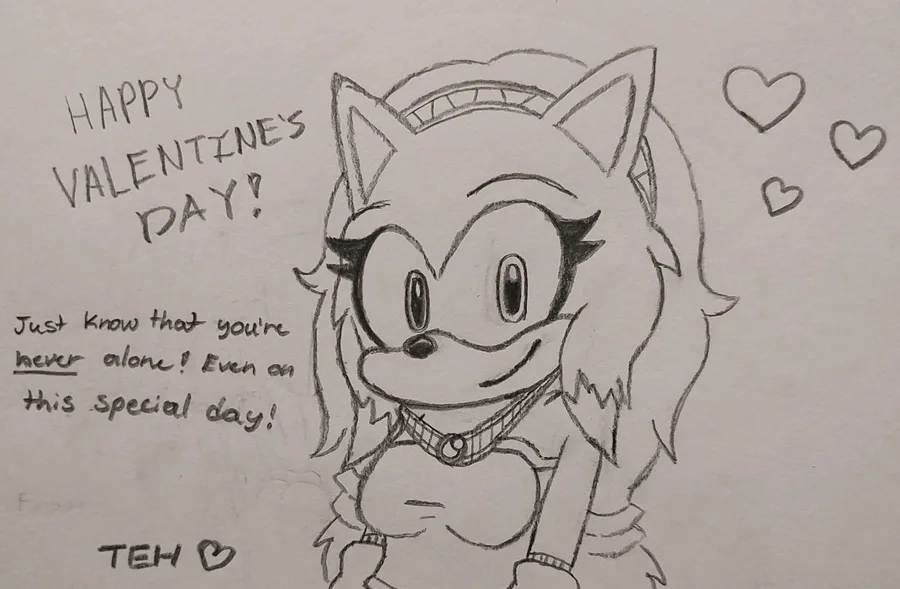 HAPPY
VALENTINE'S
DAY!
Just know that you're
never alone! Even on
this special day!
TEH